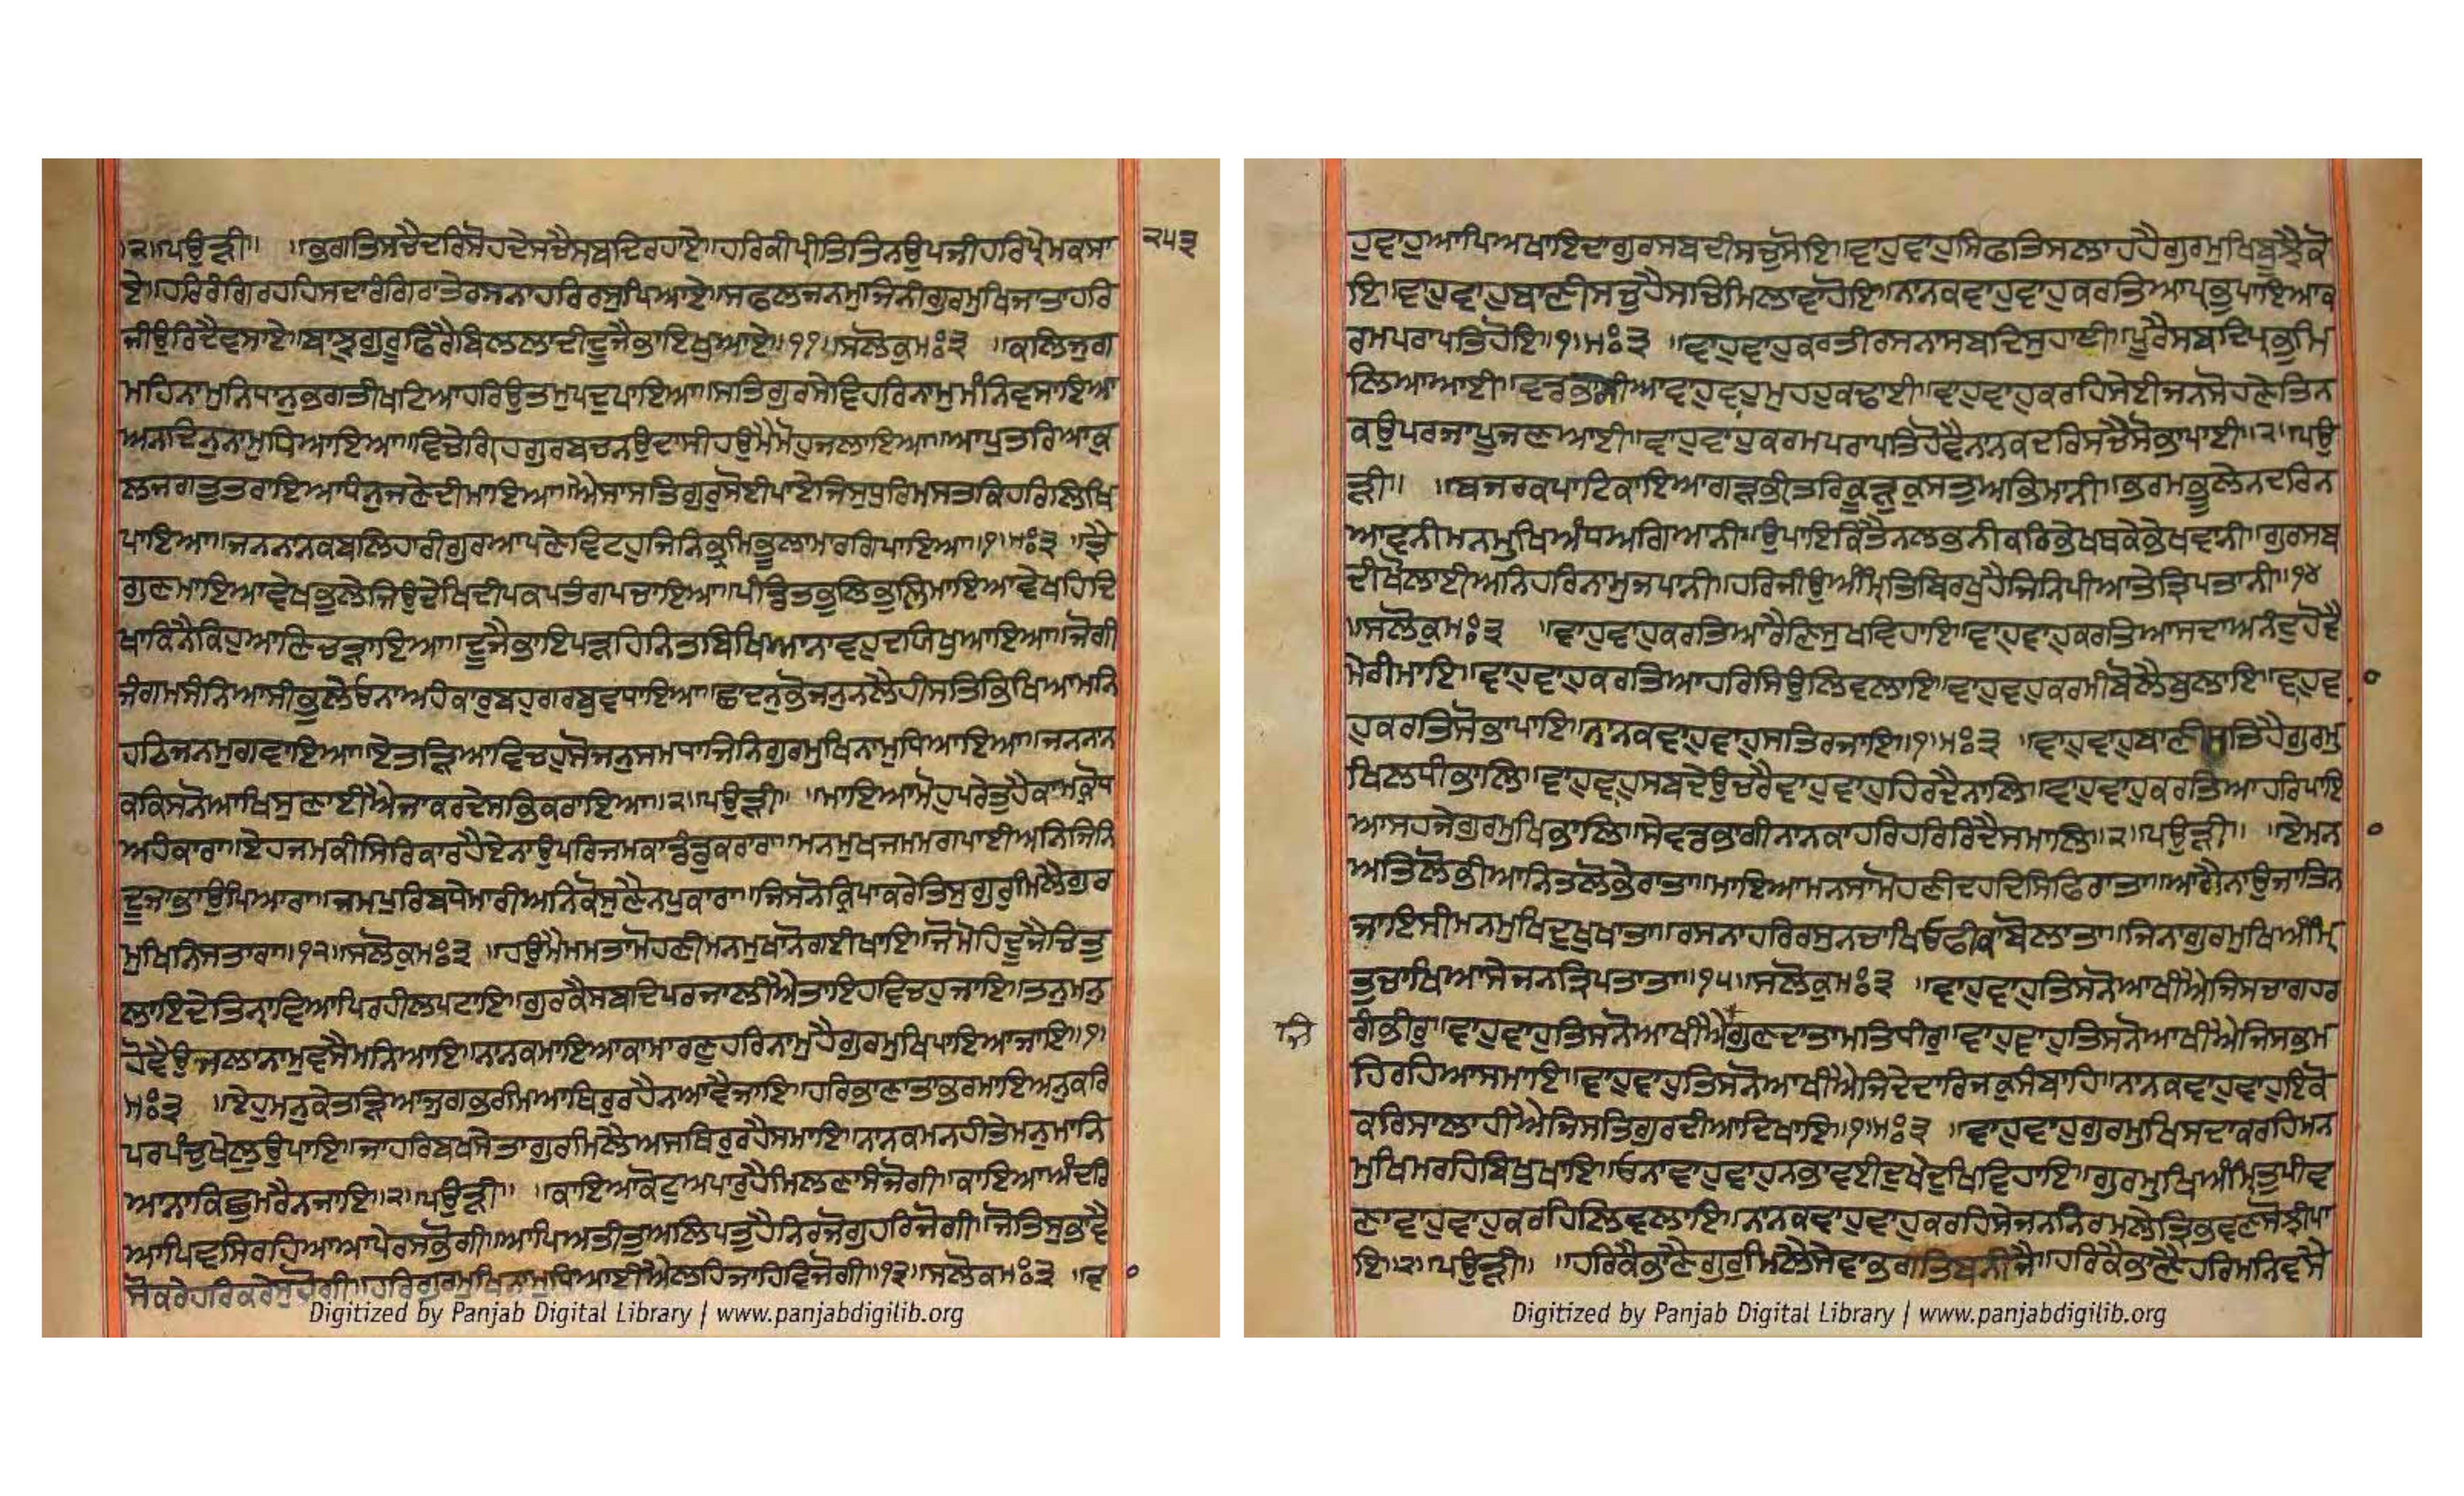 ੨॥ਪਉੜੀ॥ ॥ਭਗਤਿਸਚੈਦਰਿਸੋਹਦੇਸਚੈਸਬਦਿਰਹਾਏ॥ਹਰਿਕੀਪ੍ਰੀਤਿਤਿਨਊਪਜੀਹਰਿਪ੍ਰੇਮਕਸਾ
੨੫੩
ਏ॥ਹਰਿਰੰਗਿਰਹਹਿਸਦਾਰੰਗਿਰਾਤੇਰਸਨਾਹਰਿਰਸੁਪਿਆਏ॥ਸਫਲਜਨਮੁਜਿਨੀਗੁਰਮੁਖਿਜਾਤਾਹਰਿ
ਜੀਉਰਿਦੈਵਸਾਏ॥ਬਾਝੁਗੁਰੂਫਿਰੈਬਿਲਲਾਦੀਦੂਜੈਭਾਇਖੁਆਏ॥੧੧॥ਸਲੋਕੁਮਃ੩ ॥ਕਲਿਜੁਗ
ਮਹਿਨਾਮੁਨਿਧਾਨੁਭਗਤੀਖਟਿਆਹਰਿਉਤਮਪਦੁਪਾਇਆ॥ਸਤਿਗੁਰਸੇਵਿਹਰਿਨਾਮੁਮੰਨਿਵਸਾਇਆ
ਅਨਦਿਨੁਨਾਮੁਧਿਆਇਆ॥ਵਿਚੇਗ੍ਰਿਹਗੁਰਬਚਨਉਦਾਸੀਹਉਮੈਮੋਹੁਜਲਾਇਆ॥ਆਪੁਤਰਿਆਕੁ
ਲਜਗਤੁਤਰਾਇਆਧੰਨੁਜਣੇਦੀਮਾਇਆ॥ਐਸਾਸਤਿਗੁਰੁਸੋਈਪਾਏਜਿਸੁਧੁਰਿਮਸਤਕਿਹਰਿਲਿਖਿ
ਪਾਇਆ॥ਜਨਨਾਨਕਬਲਿਹਾਰੀਗੁਰਆਪਣੇਵਿਟਹੁਜਿਨਿਭ੍ਰਮਿਭੂਲਾਮਾਰਗਿਪਾਇਆ॥੧॥ਮਃ੩ ॥ਤ੍ਰੈ
ਗੁਣਮਾਇਆਵੇਖਭੂਲੇਜਿਉਦੇਖਿਦੀਪਕਪਤੰਗਪਚਾਇਆ॥ਪੰਡਿਤਭੁਲਿਭੁਲਿਮਾਇਆਵੇਖਹਿਦਿ
ਖਾਕਿਨੈਕਿਹੁਆਣਿਚੜਾਇਆ॥ਦੂਜੈਭਾਇਪੜਹਿਨਿਤਬਿਖਿਆਨਾਵਹੁਦਯਿਖੁਆਇਆ॥ਜੋਗੀ
ਜੰਗਮਸੰਨਿਆਸੀਭੂਲੇਓਨਾਅਹੰਕਾਰੁਬਹੁਗਰਬੁਵਧਾਇਆ॥ਛਾਦਨੁਭੋਜਨੁਨਲੈਹੀਸਤਿਭਿਖਿਆਮਨਿ
ਹਠਿਜਨਮੁਗਵਾਇਆ॥ਏਤੜਿਆਵਿਚਹੁਸੋਜਨੁਸਮਧਾਜਿਨਿਗੁਰਮੁਖਿਨਾਮੁਧਿਆਇਆ॥ਜਨਨਾਨ
ਕਕਿਸਨੋਆਖਿਸੁਣਾਈਐਜਾਕਰਦੇਸਭਿਕਰਾਇਆ॥੨॥ਪਉੜੀ॥ ॥ਮਾਇਆਮੋਹੁਪਰੇਤੁਹੈਕਾਮੁਕ੍ਰੋਧ
ਅਹੰਕਾਰਾ॥ਏਹਜਮਕੀਸਿਰਿਕਾਰਹੈਏਨਾਉਪਰਿਜਮਕਾਡੰਡੁਕਰਾਰਾ॥ਮਨਮੁਖਜਮਮਗਪਾਈਅਨਿਜਿਨਿ
ਦੂਜਾਭਾਉਪਿਆਰਾ॥ਜਮਪੁਰਿਬਧੇਮਾਰੀਅਨਿਕੋਸੁਣੈਨਪੁਕਾਰਾ॥ਜਿਸਨੋਕ੍ਰਿਪਾਕਰੇਤਿਸੁਗੁਰੁਮਿਲੈਗੁਰ
ਮੁਖਿਨਿਸਤਾਰਾ॥੧੨॥ਸਲੋਕੁਮਃ੩ ॥ਹਉਮੈਮਮਤਾਮੋਹਣੀਮਨਮੁਖਾਨੋਗਈਖਾਇ॥ਜੋਮੋਹਿਦੂਜੈਚਿਤੁ
ਲਾਇਦੇਤਿਨਾਵਿਆਪਿਰਹੀਲਪਟਾਇ॥ਗੁਰਕੈਸਬਦਿਪਰਜਾਲੀਐਤਾਇਹਵਿਚਹੁਜਾਇ॥ਤਨੁਮਨੁ
ਹੋਵੈਉਜਲਾਨਾਮੁਵਸੈਮਨਿਆਇ॥ਨਾਨਕਮਾਇਆਕਾਮਾਰਣੁਹਰਿਨਾਮੁਹੈਗੁਰਮੁਖਿਪਾਇਆਜਾਇ॥੧॥
ਮਃ੩ ॥ਏਹੁਮਨੁਕੇਤੜਿਆਜੁਗਭਰਮਿਆਥਿਰੁਰਹੈਨਆਵੈਜਾਇ॥ਹਰਿਭਾਣਾਤਾਭਰਮਾਇਅਨੁਕਰਿ
ਪਰਪੰਚੁਖੇਲੁਉਪਾਇ॥ਜਾਹਰਿਬਖਸੇਤਾਗੁਰਮਿਲੈਅਸਥਿਰੁਰਹੈਸਮਾਇ॥ਨਾਨਕਮਨਹੀਤੇਮਨੁਮਾਨਿ
ਆਨਾਕਿਛੁਮਰੈਨਜਾਇ॥੨॥ਪਉੜੀ॥ ॥ਕਾਇਆਕੋਟੁਅਪਾਰੁਹੈਮਿਲਣਾਸੰਜੋਗੀ॥ਕਾਇਆਅੰਦਰਿ
ਆਪਿਵਸਿਰਹਿਆਆਪੇਰਸਭੋਗੀ॥ਆਪਿਅਤੀਤੁਅਲਿਪਤੁਹੈਨਿਰਜੋਗੁਹਰਿਜੋਗੀ॥ਜੋਤਿਸੁਭਾਵੈ
ਸੋਕਰੇਹਰਿਕਰੇਸੁਹੋਗੀ॥ਹਰਿਗੁਰਮੁਖਿਨਾਮੁਧਿਆਈਐਲਹਿਜਾਹਿਵਿਜੋਗੀ॥੧੩॥ਸਲੋਕਮਃ੩ ॥ਵਾ
Digitized by Panjab Digital Library | www.panjabdigilib.org
ਹੁਵਾਹੁਆਪਿਅਖਾਇਦਾਗੁਰਸਬਦੀਸਚੁਸੋਇ॥ਵਾਹੁਵਾਹੁਸਿਫਤਿਸਲਾਹਹੈਗੁਰਮੁਖਿਬੂਝੈਕੋ
ਇ॥ਵਾਹੁਵਾਹੁਬਾਣੀਸਚੁਹੈਸਚਿਮਿਲਾਵਾਹੋਇ॥ਨਾਨਕਵਾਹੁਵਾਹੁਕਰਤਿਆਪ੍ਰਭੁਪਾਇਆਕ
ਰਮਪਰਾਪਤਿਹੋਇ॥੧॥ਮਃ੩ ॥ਵਾਹੁਵਾਹੁਕਰਤੀਰਸਨਾਸਬਦਿਸੁਹਾਈ॥ਪੂਰੈਸਬਦਿਪ੍ਰਭੁਮਿ
ਲਿਆਆਈ॥ਵਡਭਾਗੀਆਵਾਹੁਵਾਹੁਮੁਹਹੁਕਢਾਈ॥ਵਾਹੁਵਾਹੁਕਰਹਿਸੇਈਜਨਸੋਹਣੇਤਿਨ
ਕਉਪਰਜਾਪੂਜਣਆਈ॥ਵਾਹੁਵਾਹੁਕਰਮਪਰਾਪਤਿਹੋਵੈਨਾਨਕਦਰਿਸਚੈਸੋਭਾਪਾਈ॥੨॥ਪਉ
ੜੀ॥ ॥ਬਜਰਕਪਾਟਿਕਾਇਆਗੜਭੀਤਰਿਕੂੜੁਕੁਸਤੁਅਭਿਮਾਨੀ॥ਭਰਮਭੂਲੇਨਦਰਿਨ
ਆਵਨੀਮਨਮੁਖਿਅੰਧਅਗਿਆਨੀ॥ਉਪਾਇਕਿਤੈਨਲਭਨੀਕਰਿਭੇਖਥਕੇਭੇਖਵਾਨੀ॥ਗੁਰਸਬ
ਦੀਖੋਲਾਈਅਨਿਹਰਿਨਾਮੁਜਪਾਨੀ॥ਹਰਿਜੀਉਅੰਮ੍ਰਿਤਬਿਰਖੁਹੈਜਿਨਿਪੀਆਤੇਤ੍ਰਿਪਤਾਨੀ॥੧੪
॥ਸਲੋਕੁਮਃ੩ ॥ਵਾਹੁਵਾਹੁਕਰਤਿਆਰੈਣਿਸੁਖਵਿਹਾਇ॥ਵਾਹੁਵਾਹੁਕਰਤਿਆਸਦਾਅਨੰਦੁਹੋਵੈ
ਮੇਰੀਮਾਇ॥ਵਾਹੁਵਾਹੁਕਰਤਿਆਹਰਿਸਿਉਲਿਵਲਾਇ॥ਵਾਹੁਵਾਹੁਕਰਮੀਬੋਲੈਬੁਲਾਇ॥ਵਾਹੁਵਾ
ਹੁਕਰਤਿਸੋਭਾਪਾਇ॥ਨਾਨਕਵਾਹੁਵਾਹੁਸਤਿਰਜਾਇ॥੧॥ਮਃ੩ ॥ਵਾਹੁਵਾਹੁਬਾਣੀਸਤਿਹੈਗੁਰਮੁ
ਖਿਲਧੀਭਾਲਿ॥ਵਾਹੁਵਾਹੁਸਬਦੇਉਚਰੈਵਾਹੁਵਾਹੁਹਿਰਦੈਨਾਲਿ॥ਵਾਹੁਵਾਹੁਕਰਤਿਆਹਰਿਪਾਇ
ਆਸਹਜੇਗੁਰਮੁਖਿਭਾਲਿ॥ਸੇਵਡਭਾਗੀਨਾਨਕਾਹਰਿਹਰਿਰਿਦੈਸਮਾਲਿ॥੨॥ਪਉੜੀ॥ ॥ਏਮਨਾ
ਅਤਿਲੋਭੀਆਨਿਤਲੋਭੇਰਾਤਾ॥ਮਾਇਆਮਨਸਾਮੋਹਣੀਦਹਦਿਸਿਫਿਰਾਤਾ॥ਆਗੈਨਾਉਜਾਤਿਨ
ਜਾਇਸੀਮਨਮੁਖਿਦੁਖੁਖਾਤਾ॥ਰਸਨਾਹਰਿਰਸੁਨਚਾਖਿਓਫੀਕਾਬੋਲਾਤਾ॥ਜਿਨਾਗੁਰਮੁਖਿਅੰਮ੍ਰਿ
ਤੁਚਾਖਿਆਸੇਜਨਤ੍ਰਿਪਤਾਤਾ॥੧੫॥ਸਲੋਕੁਮਃ੩ ॥ਵਾਹੁਵਾਹੁਤਿਸਨੋਆਖੀਐਜਿਸਚਾਗਹਰ
ਗੰਭੀਰੁ॥ਵਾਹੁਵਾਹੁਤਿਸਨੋਆਖੀਐਗੁਣਦਾਤਾਮਤਿਧੀਰੁ॥ਵਾਹੁਵਾਹੁਤਿਸਨੋਆਖੀਐਜਿਸਭਮ
ਹਿਰਹਿਆਸਮਾਇ॥ਵਾਹੁਵਾਹੁਤਿਸਨੋਆਖੀਐਜਿਦੇਦਾਰਿਜਕੁਸੰਬਾਹਿ॥ਨਾਨਕਵਾਹੁਵਾਹੁਇਕੋ
ਕਰਿਸਾਲਾਹੀਐਜਿਸਤਿਗੁਰਦੀਆਦਿਖਾਇ॥੧॥ਮਃ੩ ॥ਵਾਹੁਵਾਹੁਗੁਰਮੁਖਿਸਦਾਕਰਹਿਮਨ
ਮੁਖਿਮਰਹਿਬਿਖੁਖਾਇ॥ਓਨਾਵਾਹੁਵਾਹੁਨਭਾਵਈਦੁਖੇਦੁਖਿਵਿਹਾਇ॥ਗੁਰਮੁਖਿਅੰਮ੍ਰਿਤੁਪੀਵ
ਣਾਵਾਹੁਵਾਹੁਕਰਹਿਲਿਵਲਾਇ॥ਨਾਨਕਵਾਹੁਵਾਹੁਕਰਹਿਸੇਜਨਨਿਰਮਲੇਤ੍ਰਿਭਵਣਸੋਝੀਪਾ
ਇ॥੨॥ਪਉੜੀ॥ ॥ਹਰਿਕੈਭਾਣੈਗੁਰੁਮਿਲੈਸੇਵਾਭਗਤਿਬਨੀਜੈ॥ਹਰਿਕੈਭਾਣੈਹਰਿਮਨਿਵਸੈ
Digitized by Panjab Digital Library | www.panjabdigilib.org